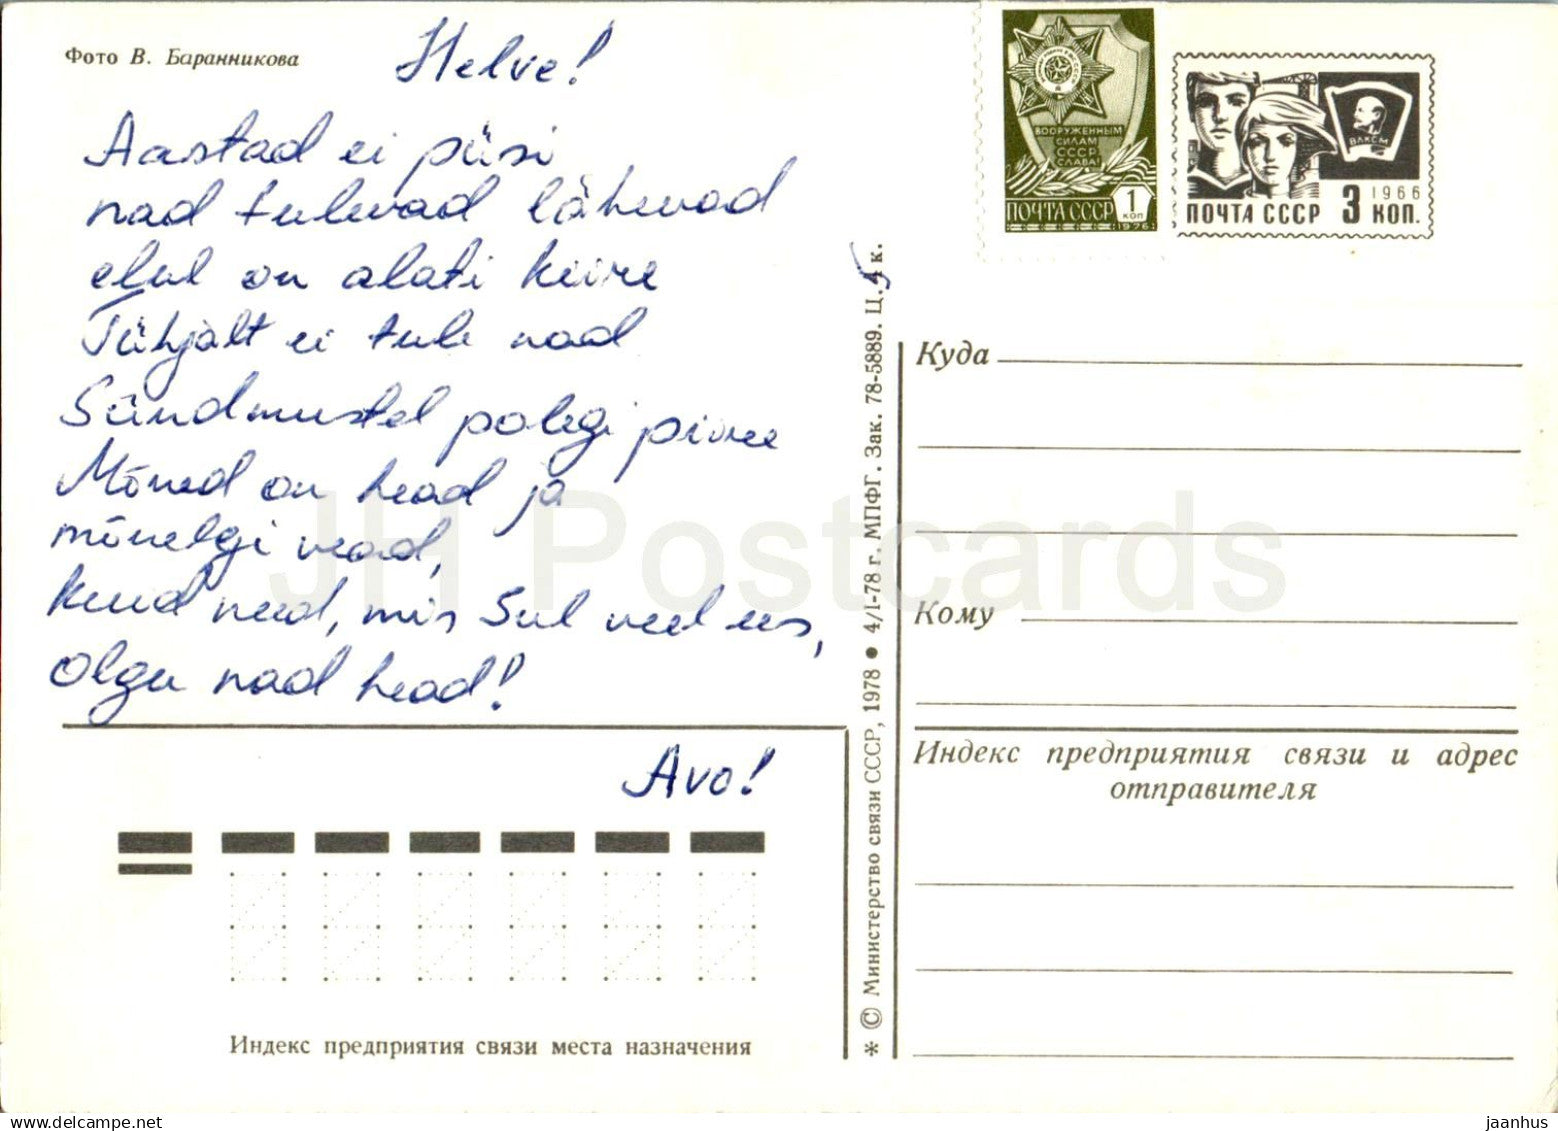 Фото В. Баранникова
Helve!
Aastad ei püsi
nad tulevad lähevad
elul on alati kiire
Tühjalt ei tule nad
Sündmustel polegi piire
Mõned on head ja
mõnelgi vead,
kuid need, mis Sul veel ees,
olgu nad head!
Avo!
Индекс предприятия связи места назначения
* © Министерство связи СССР, 1978 • 4/I-78 г. МПФГ. Зак. 78-5889. Ц. к.
ВООРУЖЕННЫМ
СИЛАМ
СССР
СЛАВА!
1
КОП
ПОЧТА СССР
1976
ВЛКСМ
1966
ПОЧТА СССР 3 КОП.
Куда
Кому
Индекс предприятия связи и адрес
отправителя
JH Postcards
delcampe.net
jaanhus